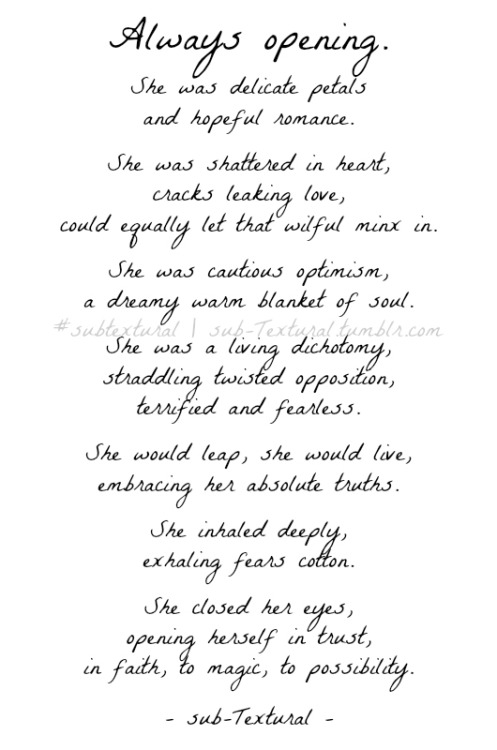 Always opening.
She was delicate petals
and hopeful romance.
She was shattered in heart,
cracks leaking love,
could equally let that wilful minx in.
She was cautious optimism,
a dreamy warm blanket of soul.
#subtextural | sub-Textural.tumblr.com
She was a living dichotomy,
straddling twisted opposition,
terrified and fearless.
She would leap, she would live,
embracing her absolute truths.
She inhaled deeply,
exhaling fears cotton.
She closed her eyes,
opening herself in trust,
in faith, to magic, to possibility.
- sub-Textural -